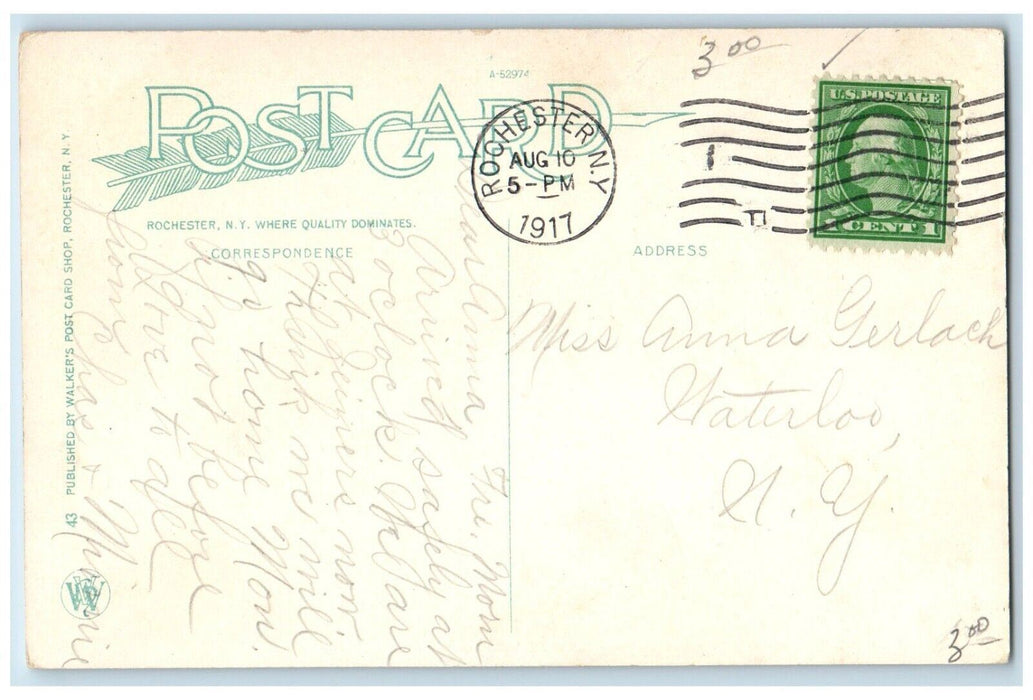 3 00
A-52974
POST CARD
ROCHESTER, N.Y.
AUG 10
5-PM
1917
U.S. POSTAGE
1 CENT 1
ROCHESTER, N.Y. WHERE QUALITY DOMINATES.
CORRESPONDENCE
ADDRESS
43 PUBLISHED BY WALKER'S POST CARD SHOP, ROCHESTER, N.Y.
Fri. Morn
Dear Anna,
Arrived safely at
3 oclock. We are
at now
think we will
go home Mon.
if not before
Love to all
from Chas &
Miss Anna Gerlach
Waterloo,
N. Y.
3 00